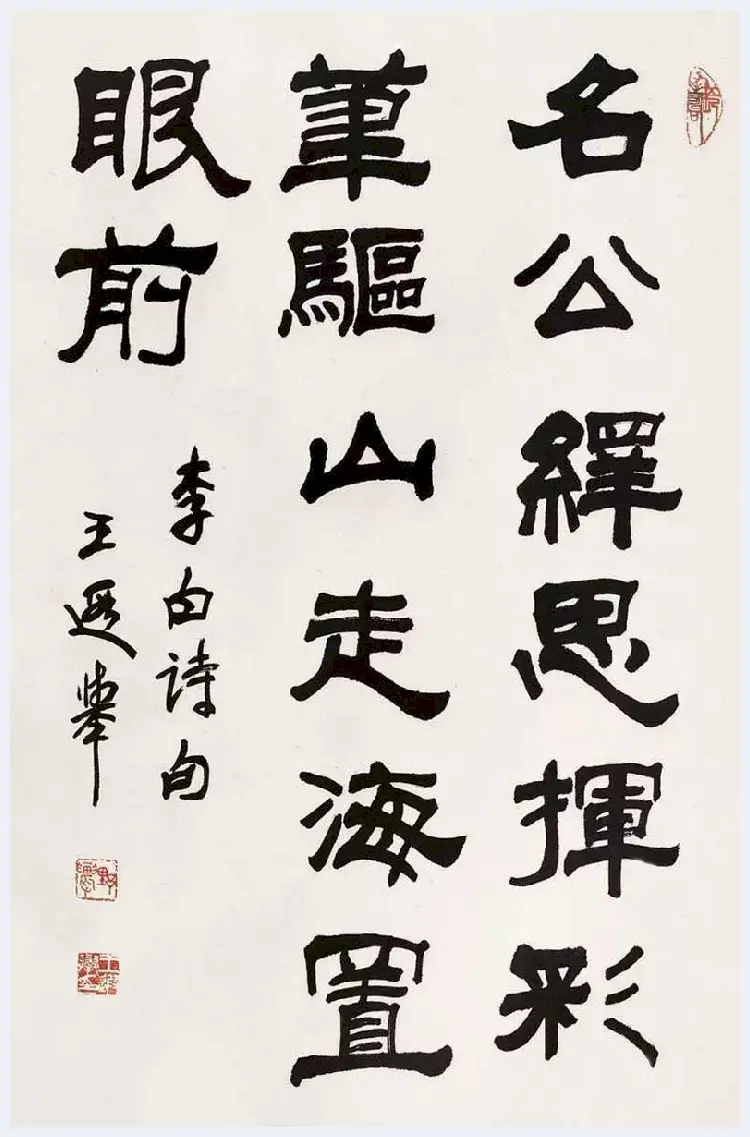 名公繹思揮彩
筆驅山走海置
眼前
李白詩句
王遐舉